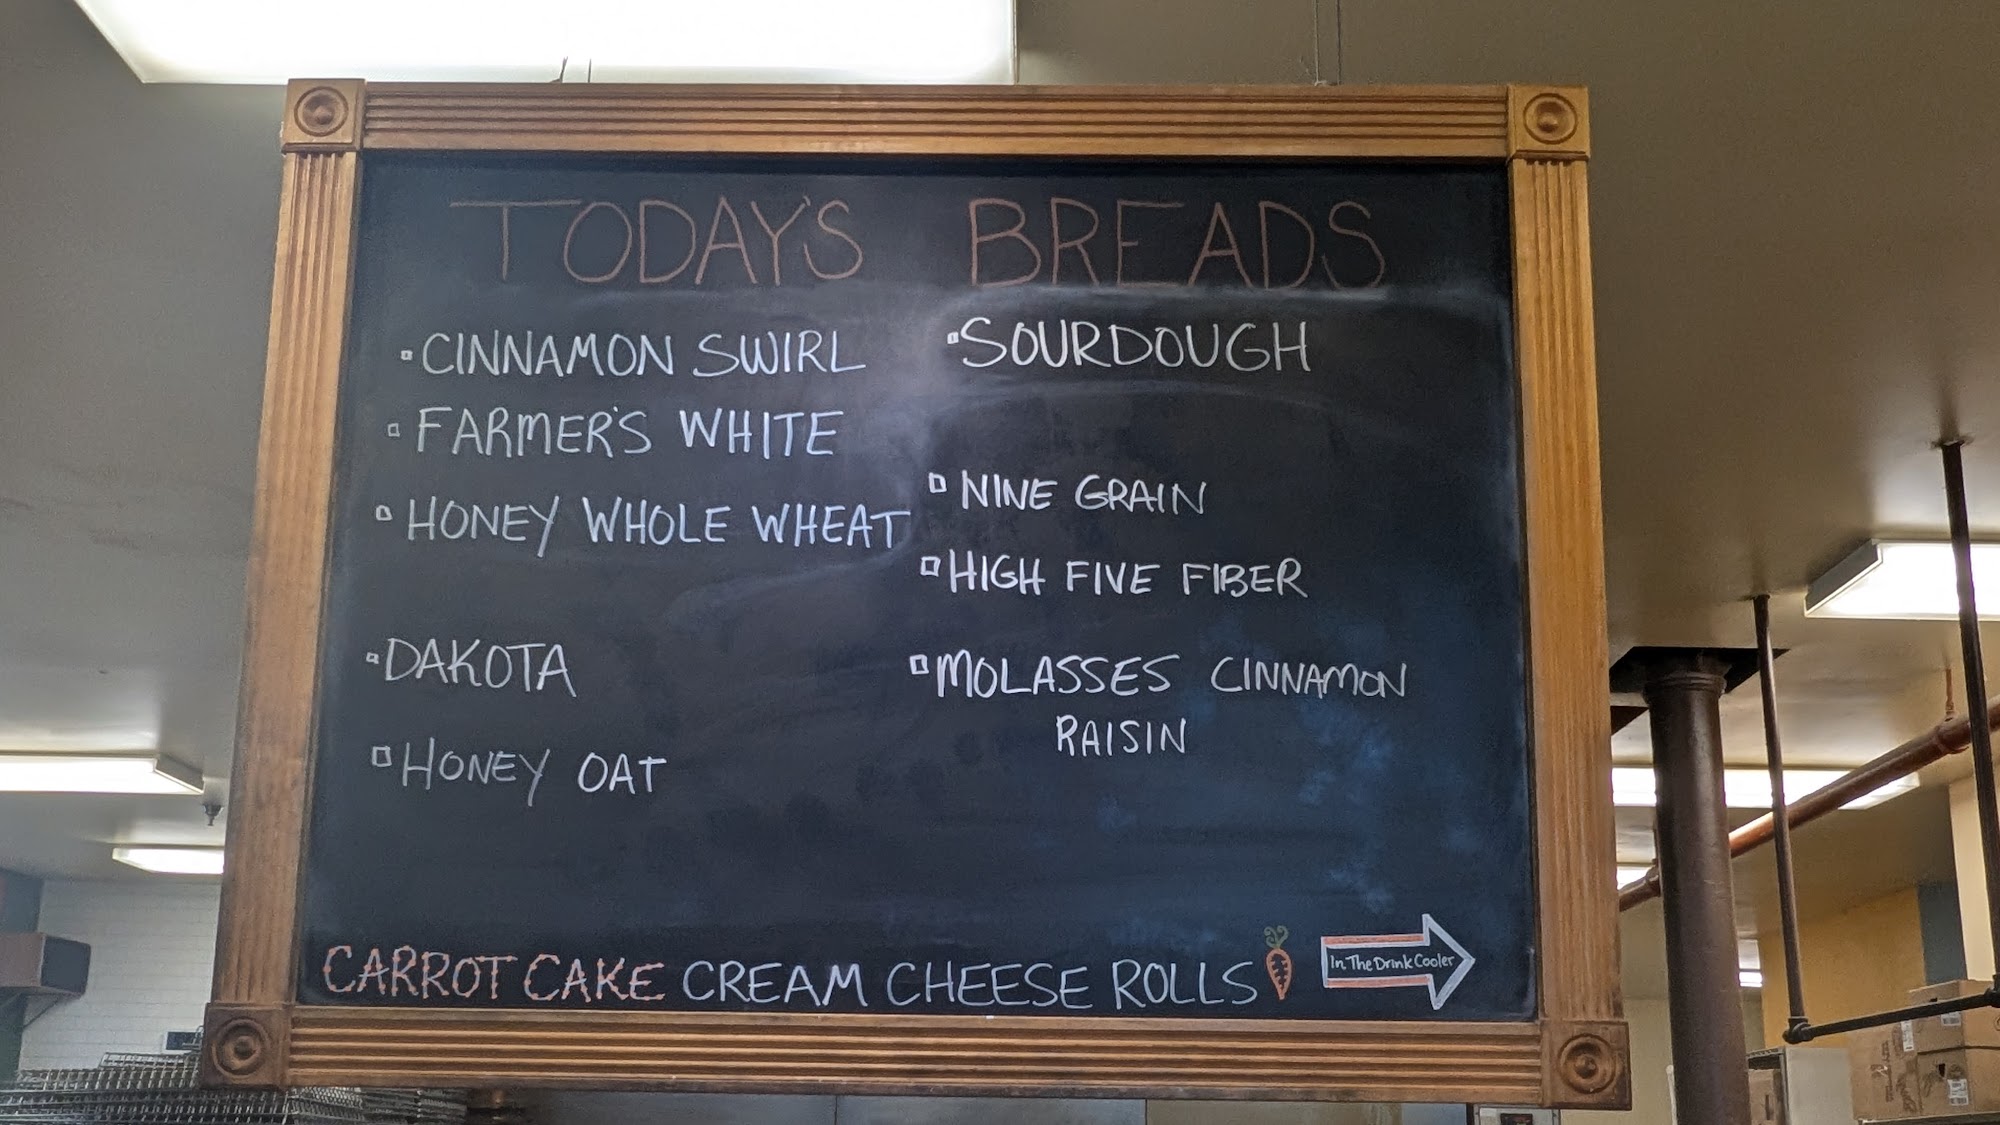 TODAY'S BREADS
CINNAMON SWIRL
FARMER'S WHITE
HONEY WHOLE WHEAT
DAKOTA
HONEY OAT
SOURDOUGH
NINE GRAIN
HIGH FIVE FIBER
MOLASSES CINNAMON
RAISIN
CARROT CAKE CREAM CHEESE ROLLS
In The Drink Cooler